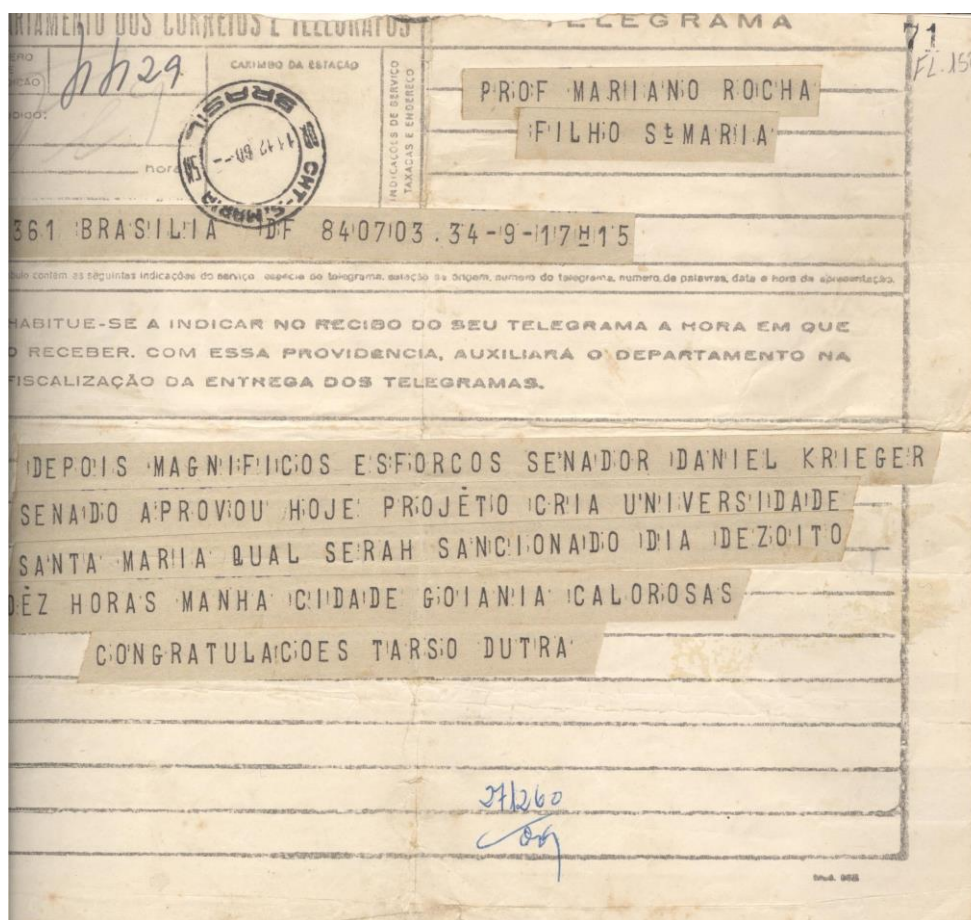 TELEGRAMA
71
1129
CARIMBO DA ESTAÇÃO
INDICAÇÕES DE SERVIÇO
TAXADAS E ENDEREÇO
hora
BRASIL
CMT-S.MARIA
PROF MARIANO ROCHA
FILHO St MARIA
361 BRASILIA DF 840703.34-9-17H15
contém as seguintes indicações do serviço espécie do telegrama, estação de origem, numero do telegrama, numero de palavras, data e hora da apresentação.
HABITUE-SE A INDICAR NO RECIBO DO SEU TELEGRAMA A HORA EM QUE
O RECEBER. COM ESSA PROVIDENCIA, AUXILIARÁ O DEPARTAMENTO NA
FISCALIZAÇÃO DA ENTREGA DOS TELEGRAMAS.
DEPOIS MAGNIFICOS ESFORCOS SENADOR DANIEL KRIEGER
SENADO APROVOU HOJE PROJÉTO CRIA UNIVERSIDADE
SANTA MARIA QUAL SERAH SANCIONADO DIA DEZOITO
DÉZ HORAS MANHA CIDADE GOIANIA CALOROSAS
CONGRATULACOES TARSO DUTRA
271260